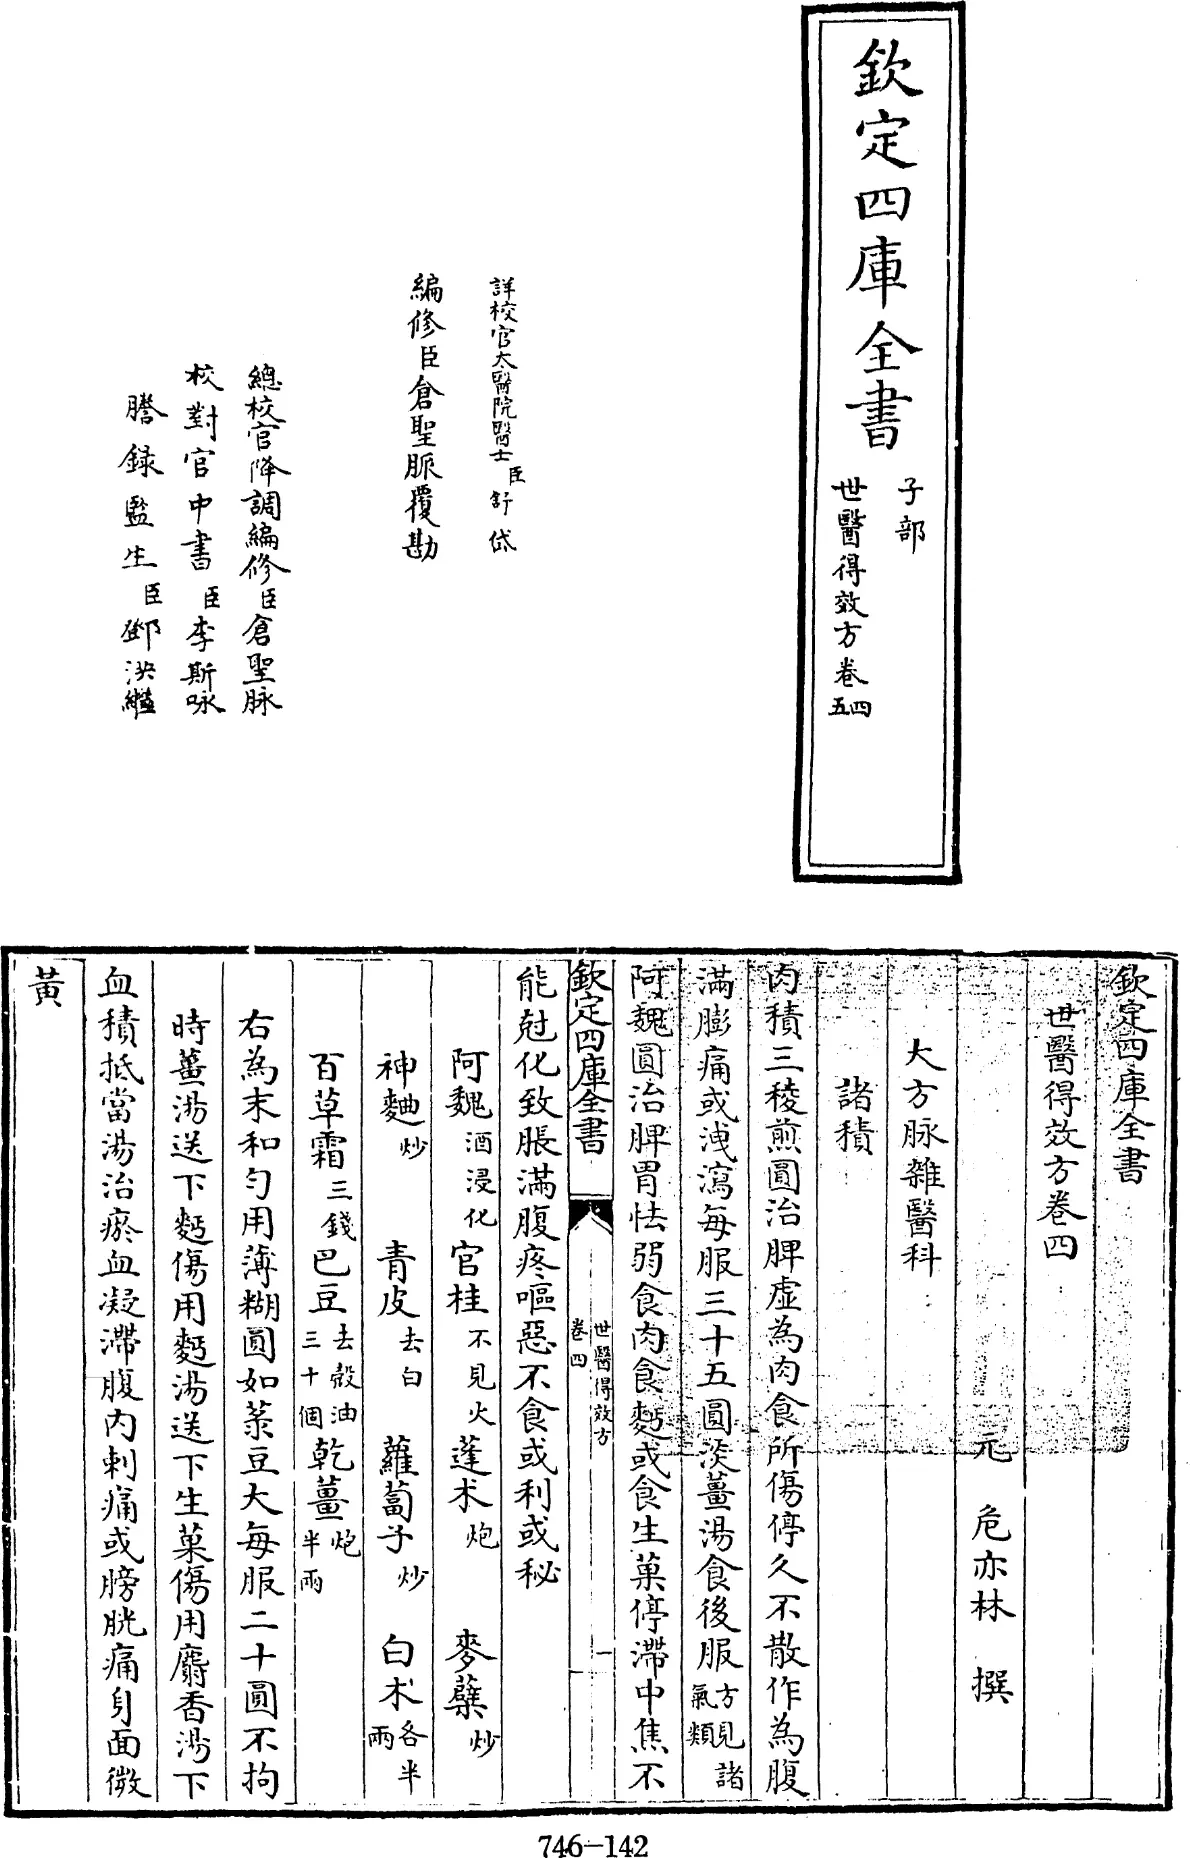 欽定四庫全書
子部
世醫得效方卷四五
詳校官太醫院醫士臣舒岱
編修臣倉聖脈覆勘
總校官降調編修臣倉聖脉
校對官中書臣李斯咏
謄録監生臣鄧洪繼
欽定四庫全書
世醫得效方卷四
元 危亦林 撰
大方脉雜醫科
諸積
肉積三稜煎圓治脾虛為肉食所傷停久不散作為腹
滿膨痛或洩瀉每服三十五圓淡薑湯食後服方見諸氣類
阿魏圓治脾胃怯弱食肉食麫或食生菓停滯中焦不
欽定四庫全書
世醫得效方
卷四
一
能尅化致脹滿腹疼嘔惡不食或利或秘
阿魏酒浸化 官桂不見火 蓬朮炮 麥蘖炒
神麯炒 青皮去白 蘿蔔子炒 白朮各半兩
百草霜三錢 巴豆去殼油三十個 乾薑炮半兩
右為末和勻用薄糊圓如菉豆大每服二十圓不拘
時薑湯送下麫傷用麫湯送下生菓傷用麝香湯下
血積抵當湯治瘀血凝滯腹内刺痛或膀胱痛身面微
黄
746-142